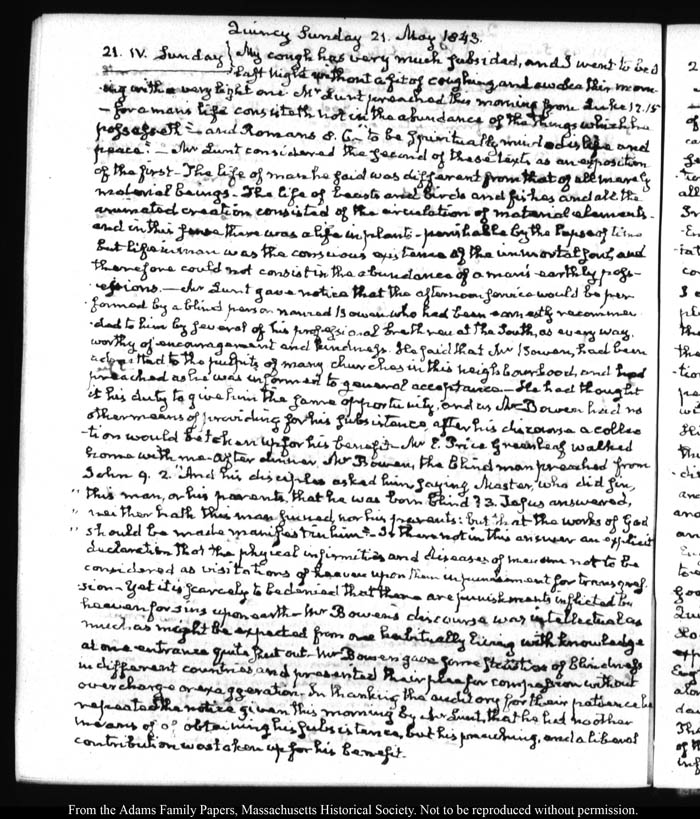 Quincy Sunday 21. May 1843.
21. IV. Sunday } My cough has very much subsided, and I went to bed
last night without a fit of coughing and awoke this morn-
ing with a very light one. Mr Lunt preached this morning from Luke 12.15
- for a mans life consisteth not in the abundance of the things which he
possesseth - and Romans 8.6. "to be Spiritually minded is life and
peace". - Mr Lunt considered the second of these texts as an exposition
of the first - The life of man he said was different from that of all merely
material beings. The life of beasts and birds and fishes and all the
animated creation consisted of the circulation of material elements -
and in this sense there was a life in plants - perishable by the lapse of time
but life in man was the conscious existence of the immortal soul, and
therefore could not consist in the abundance of a man's earthly poss-
essions. - Mr Lunt gave notice that the afternoon service would be per-
formed by a blind person named Bowen who had been earnestly recommen-
ded to him by several of his professional brethren at the South, as every way
worthy of encouragement and kindness. He said that Mr Bowen, had been
admitted to the pulpits of many churches in this neighbourhood, and had
preached as he was informed to general acceptance - He had thought
it his duty to give him the same opportunity, and as Mr Bowen had no
other means of providing for his subsistence, after his discourse a collec-
-tion would be taken up for his benefit - Mr E. Price Greenleaf walked
home with me - After dinner, Mr Bowen, the blind man preached from
John 9. 2. "And his disciples asked him saying, Master, who did sin,
" this man, or his parents, that he was born blind? 3. Jesus answered,
" neither hath this man sinned, nor his parents: but that the works of God
" should be made manifest in him". Is there not in this answer an explicit
declaration that the physical infirmities and diseases of men are not to be
considered as visitations of heaven upon them in punishment for transgres-
sion - Yet it is scarcely to be denied that there are punishments inflicted by
heaven for sins upon earth - Mr Bowen's discourse was intellectual as
much as might be expected from one habitually living with knowledge
at one entrance quite shut out - Mr Bowen gave some statistics of blindness
in different countries and presented their plea for compassion without
overcharge or exaggeration. In thanking the auditory for their patience he
repeated the notice given this morning by Mr Lunt, that he had no other
means of of obtaining his subsistence, but his preaching, and a liberal
contribution was taken up for his benefit.
From the Adams Family Papers, Massachusetts Historical Society. Not to be reproduced without permission.